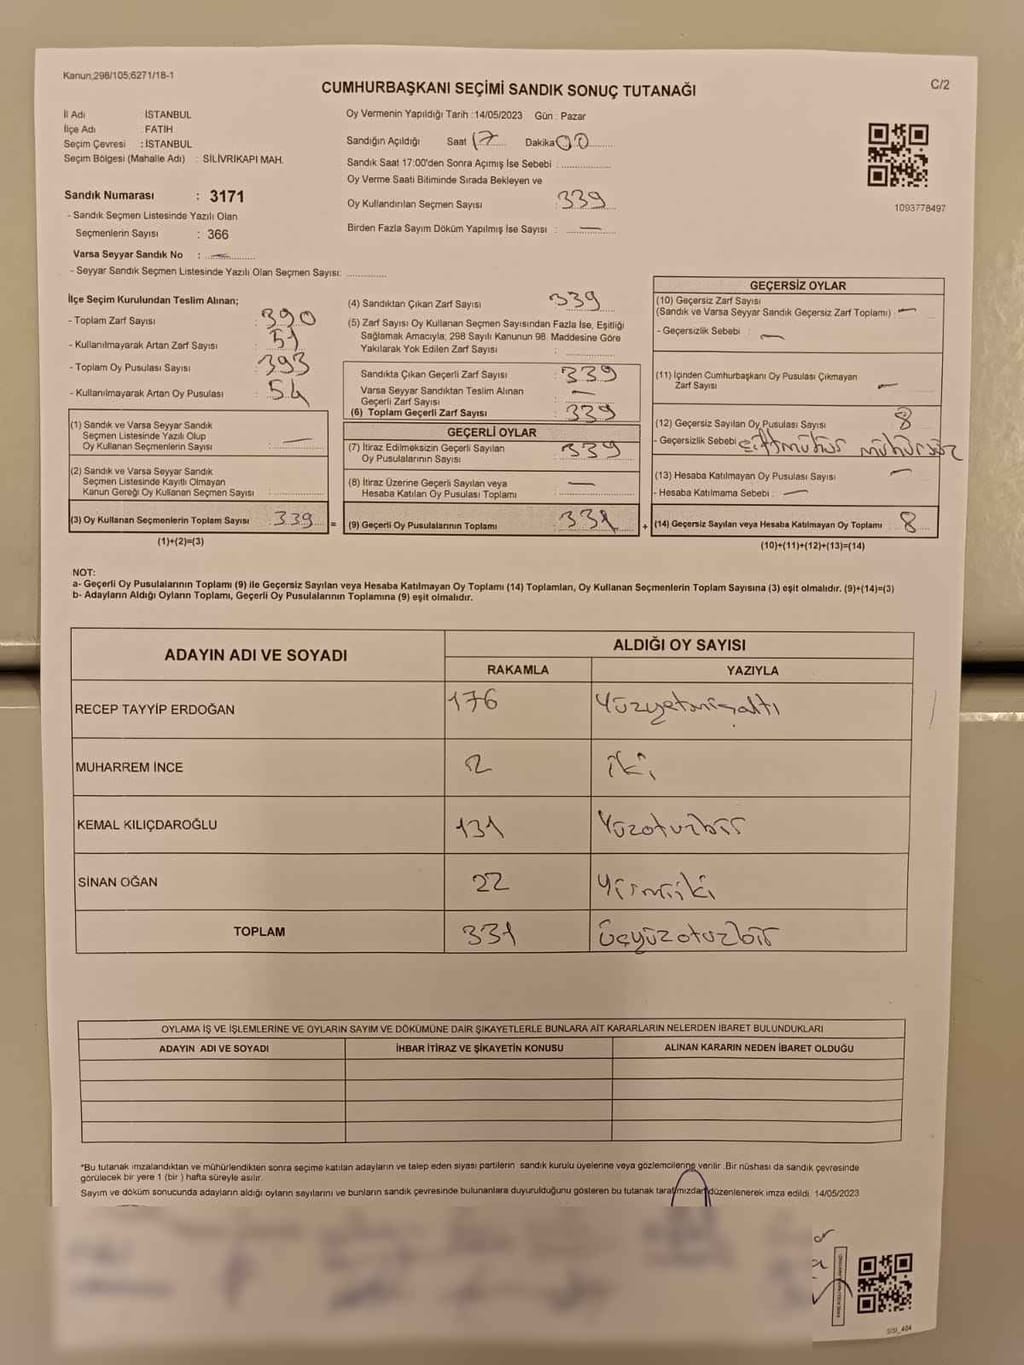 Kanun;298/105;6271/18-1
C/2
CUMHURBAŞKANI SEÇİMİ SANDIK SONUÇ TUTANAĞI
İl Adı İSTANBUL
İlçe Adı : FATİH
Seçim Çevresi : İSTANBUL
Seçim Bölgesi (Mahalle Adı) : SİLİVRİKAPI MAH.
Sandık Numarası : 3171
- Sandık Seçmen Listesinde Yazılı Olan
Seçmenlerin Sayısı : 366
Varsa Seyyar Sandık No : —
- Seyyar Sandık Seçmen Listesinde Yazılı Olan Seçmen Sayısı:
Oy Vermenin Yapıldığı Tarih :14/05/2023 Gün : Pazar
Sandığın Açıldığı Saat 17 Dakika 00
Sandık Saat 17:00'den Sonra Açımış İse Sebebi :
Oy Verme Saati Bitiminde Sırada Bekleyen ve
Oy Kullandırılan Seçmen Sayısı : 339
Birden Fazla Sayım Döküm Yapılmış İse Sayısı : —
1093778497
İlçe Seçim Kurulundan Teslim Alınan;
- Toplam Zarf Sayısı : 390
- Kullanılmayarak Artan Zarf Sayısı : 51
- Toplam Oy Pusulası Sayısı : 393
- Kullanılmayarak Artan Oy Pusulası : 54
(1) Sandık ve Varsa Seyyar Sandık
Seçmen Listesinde Yazılı Olup
Oy Kullanan Seçmenlerin Sayısı : —
(2) Sandık ve Varsa Seyyar Sandık
Seçmen Listesinde Kayıtlı Olmayan
Kanun Gereği Oy Kullanan Seçmen Sayısı :
(3) Oy Kullanan Seçmenlerin Toplam Sayısı : 339 =
(1)+(2)=(3)
(4) Sandıktan Çıkan Zarf Sayısı : 339
(5) Zarf Sayısı Oy Kullanan Seçmen Sayısından Fazla İse, Eşitliği
Sağlamak Amacıyla; 298 Sayılı Kanunun 98. Maddesine Göre
Yakılarak Yok Edilen Zarf Sayısı :
Sandıkta Çıkan Geçerli Zarf Sayısı : 339
Varsa Seyyar Sandıktan Teslim Alınan
Geçerli Zarf Sayısı : —
(6) Toplam Geçerli Zarf Sayısı : 339
GEÇERLİ OYLAR
(7) İtiraz Edilmeksizin Geçerli Sayılan
Oy Pusulalarının Sayısı : 339
(8) İtiraz Üzerine Geçerli Sayılan veya
Hesaba Katılan Oy Pusulası Toplamı : —
(9) Geçerli Oy Pusulalarının Toplamı : 331 +
GEÇERSİZ OYLAR
(10) Geçersiz Zarf Sayısı
(Sandık ve Varsa Seyyar Sandık Geçersiz Zarf Toplamı) : —
- Geçersizlik Sebebi : —
(11) İçinden Cumhurbaşkanı Oy Pusulası Çıkmayan
Zarf Sayısı : —
(12) Geçersiz Sayılan Oy Pusulası Sayısı : 8
- Geçersizlik Sebebi : çiftmühür mühürsüz
(13) Hesaba Katılmayan Oy Pusulası Sayısı : —
- Hesaba Katılmama Sebebi : —
(14) Geçersiz Sayılan veya Hesaba Katılmayan Oy Toplamı : 8
(10)+(11)+(12)+(13)=(14)
NOT:
a- Geçerli Oy Pusulalarının Toplamı (9) ile Geçersiz Sayılan veya Hesaba Katılmayan Oy Toplamı (14) Toplamları, Oy Kullanan Seçmenlerin Toplam Sayısına (3) eşit olmalıdır. (9)+(14)=(3)
b- Adayların Aldığı Oyların Toplamı, Geçerli Oy Pusulalarının Toplamına (9) eşit olmalıdır.
ADAYIN ADI VE SOYADI ALDIĞI OY SAYISI
RAKAMLA YAZIYLA
RECEP TAYYİP ERDOĞAN 176 Yüzyetmişaltı
MUHARREM İNCE 2 iki
KEMAL KILIÇDAROĞLU 131 Yüzotuzbir
SİNAN OĞAN 22 Yirmiiki
TOPLAM 331 üçyüzotuzbir
OYLAMA İŞ VE İŞLEMLERİNE VE OYLARIN SAYIM VE DÖKÜMÜNE DAİR ŞİKAYETLERLE BUNLARA AİT KARARLARIN NELERDEN İBARET BULUNDUKLARI
ADAYIN ADI VE SOYADI İHBAR İTİRAZ VE ŞİKAYETİN KONUSU ALINAN KARARIN NEDEN İBARET OLDUĞU
*Bu tutanak imzalandıktan ve mühürlendikten sonra seçime katılan adayların ve talep eden siyasi partilerin sandık kurulu üyelerine veya gözlemcilerine verilir .Bir nüshası da sandık çevresinde
görülecek bir yere 1 (bir ) hafta süreyle asılır.
Sayım ve döküm sonucunda adayların aldığı oyların sayılarını ve bunların sandık çevresinde bulunanlara duyurulduğunu gösteren bu tutanak tarafımızdan düzenlenerek imza edildi. 14/05/2023
SISI_404